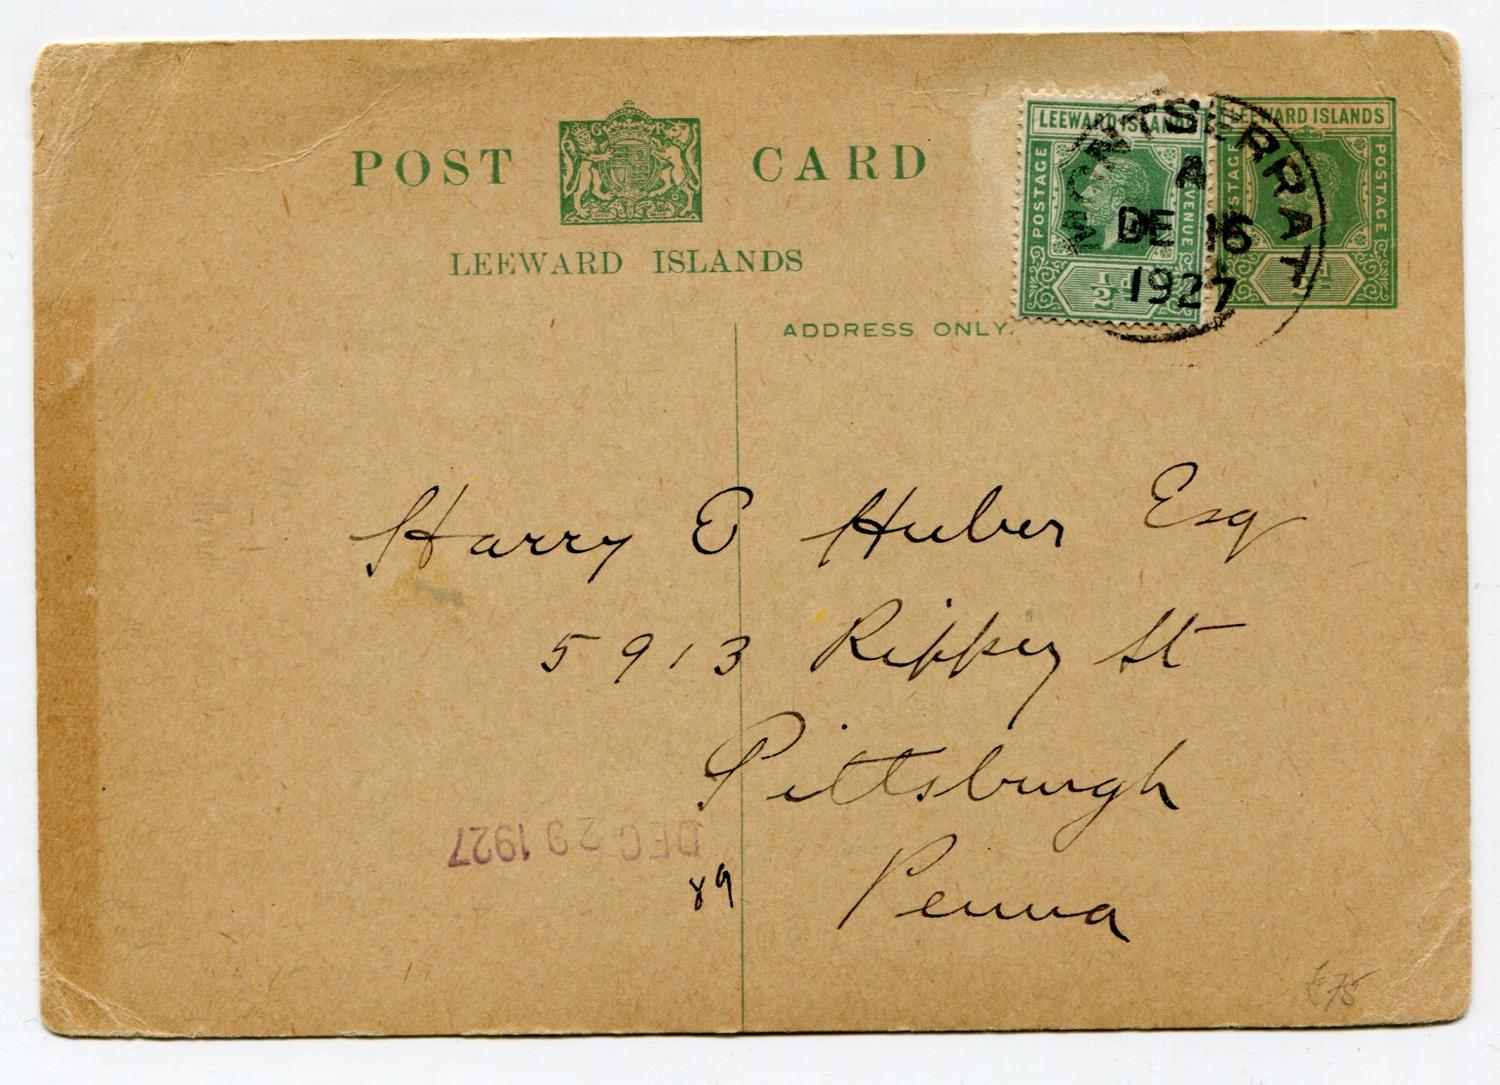 POST CARD
LEEWARD ISLANDS
ADDRESS ONLY.
LEEWARD ISLANDS
POSTAGE
REVENUE
½
LEEWARD ISLANDS
POSTAGE
POSTAGE
MONTSERRAT
A
DE 16
1927
Harry E Huber Esq
5913 Rippey St
Pittsburgh
Penna
DEC 29 1927
89